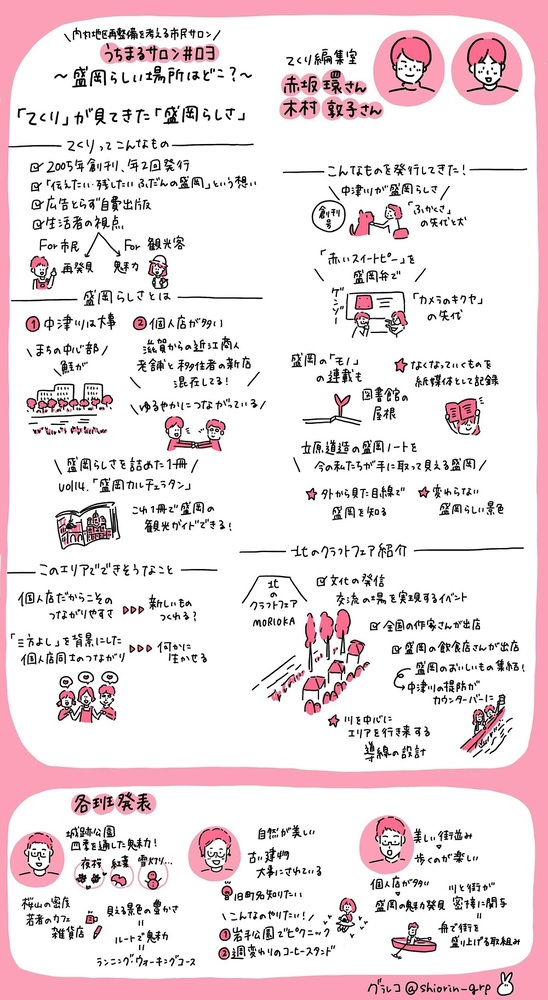 内丸地区再整備を考える市民サロン
うちまるサロン#03
～盛岡らしい場所はどこ？～
「てくり」が見てきた「盛岡らしさ」
てくり編集室
赤坂 環さん
木村 敦子さん
てくりってこんなもの
2005年創刊、年2回発行
「伝えたい・残したい ふだんの盛岡」という想い
広告とらず自費出版
生活者の視点
For 市民
For 観光客
再発見
魅力
盛岡らしさとは
① 中津川は大事
まちの中心部
鮭が
② 個人店が多い
滋賀からの近江商人
老舗と移住者の新店
混在してる！
ゆるやかにつながっている
盛岡らしさを詰めた1冊
vol14.「盛岡カルチェラタン」
これ1冊で盛岡の
観光ガイドできる！
このエリアでできそうなこと
個人店だからこその
つながりやすさ
新しいもの
つくれる？
「三方よし」を背景にした
個人店同士のつながり
何かに
生かせる
こんなものを発行してきた！
中津川が盛岡らしさ
創刊号
「ふかくさ」
の先代と犬
「赤いスイートピー」を
盛岡弁で
ゲンゾー
「カメラのキクヤ」
の先代
盛岡の「モノ」
の連載も
図書館の
屋根
なくなっていくものを
紙媒体として記録
立原道造の盛岡ノートを
今の私たちが手に取って見える盛岡
外から見た目線で
盛岡を知る
変わらない
盛岡らしい景色
北のクラフトフェア紹介
北の
クラフトフェア
MORIOKA
文化の発信
交流の場を実現するイベント
全国の作家さんが出店
盛岡の飲食店さんが出店
盛岡のおいしいもの集結！
中津川の堤防が
カウンターバーに
川を中心に
エリアを行き来する
導線の設計
各班発表
城跡公園
四季を通した魅力！
夜桜
紅葉
雪灯り...
桜山の密度
若者のカフェ
雑貨店
見える景色の豊かさ
ルートで魅力
ランニング・ウォーキングコース
自然が美しい
古い建物
大事にされている
旧町名知りたい
こんなのやりたい！
① 岩手公園でピクニック
② 週変わりのコーヒースタンド
美しい街並み
歩くのが楽しい
個人店が多い
盛岡の魅力発見
川と街が
密接に関与
舟で街を
盛り上げる取組み
グラレコ @shiorin_grp